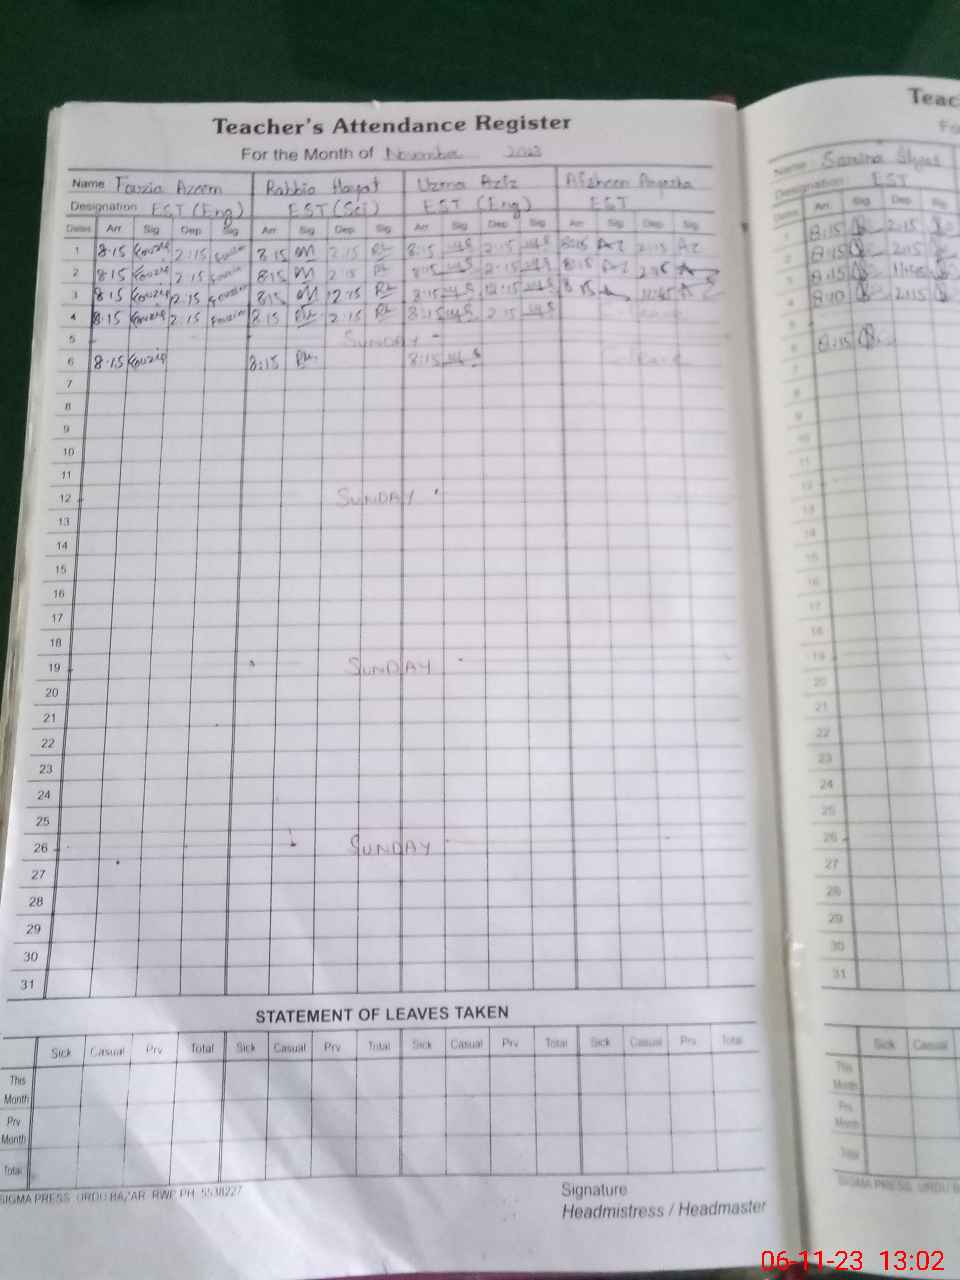 Teacher's Attendance Register
For the Month of November 2023
Name Fouzia Azeem Rabbia Hayat Uzma Aziz Afsheen
Designation EST (Eng) EST (Sci) EST (Eng) EST
Dates Arr Sig Dep Sig Arr Sig Dep Sig Arr Sig Dep Sig Arr Sig Dep Sig
1 8:15 Fouzia 2:15 Fouzia 8:15 2:15 8:15 2:15 8:15 2:15
2 8:15 Fouzia 2:15 Fouzia 8:15 2:15 8:15 2:15 8:15 2:15
3 8:15 Fouzia 12:15 Fouzia 8:15 12:15 8:15 12:15 8:15 11:45
4 8:15 Fouzia 2:15 Fouzia 8:15 2:15 8:15 2:15
5 SUNDAY
6 8:15 Fouzia 8:15 8:15
7
8
9
10
11
12 SUNDAY
13
14
15
16
17
18
19 SUNDAY
20
21
22
23
24
25
26 SUNDAY
27
28
29
30
31
STATEMENT OF LEAVES TAKEN
Sick Casual Prv Total Sick Casual Prv Total Sick Casual Prv Total Sick Casual Prv Total
This
Month
Prv
Month
Total
SIGMA PRESS URDU BAZAR RWP PH 5538227
Signature
Headmistress / Headmaster
Teac
Fo
Name Samina
Designation EST
Dates Arr Sig Dep Sig
8:15 2:15
8:15 2:15
8:15 11:45
8:10 2:15
8:15
22
23
24
25
26
27
28
29
30
31
Sick Casual
This
Month
Prv
Month
Total
SIGMA PRESS URDU B
06-11-23 13:02